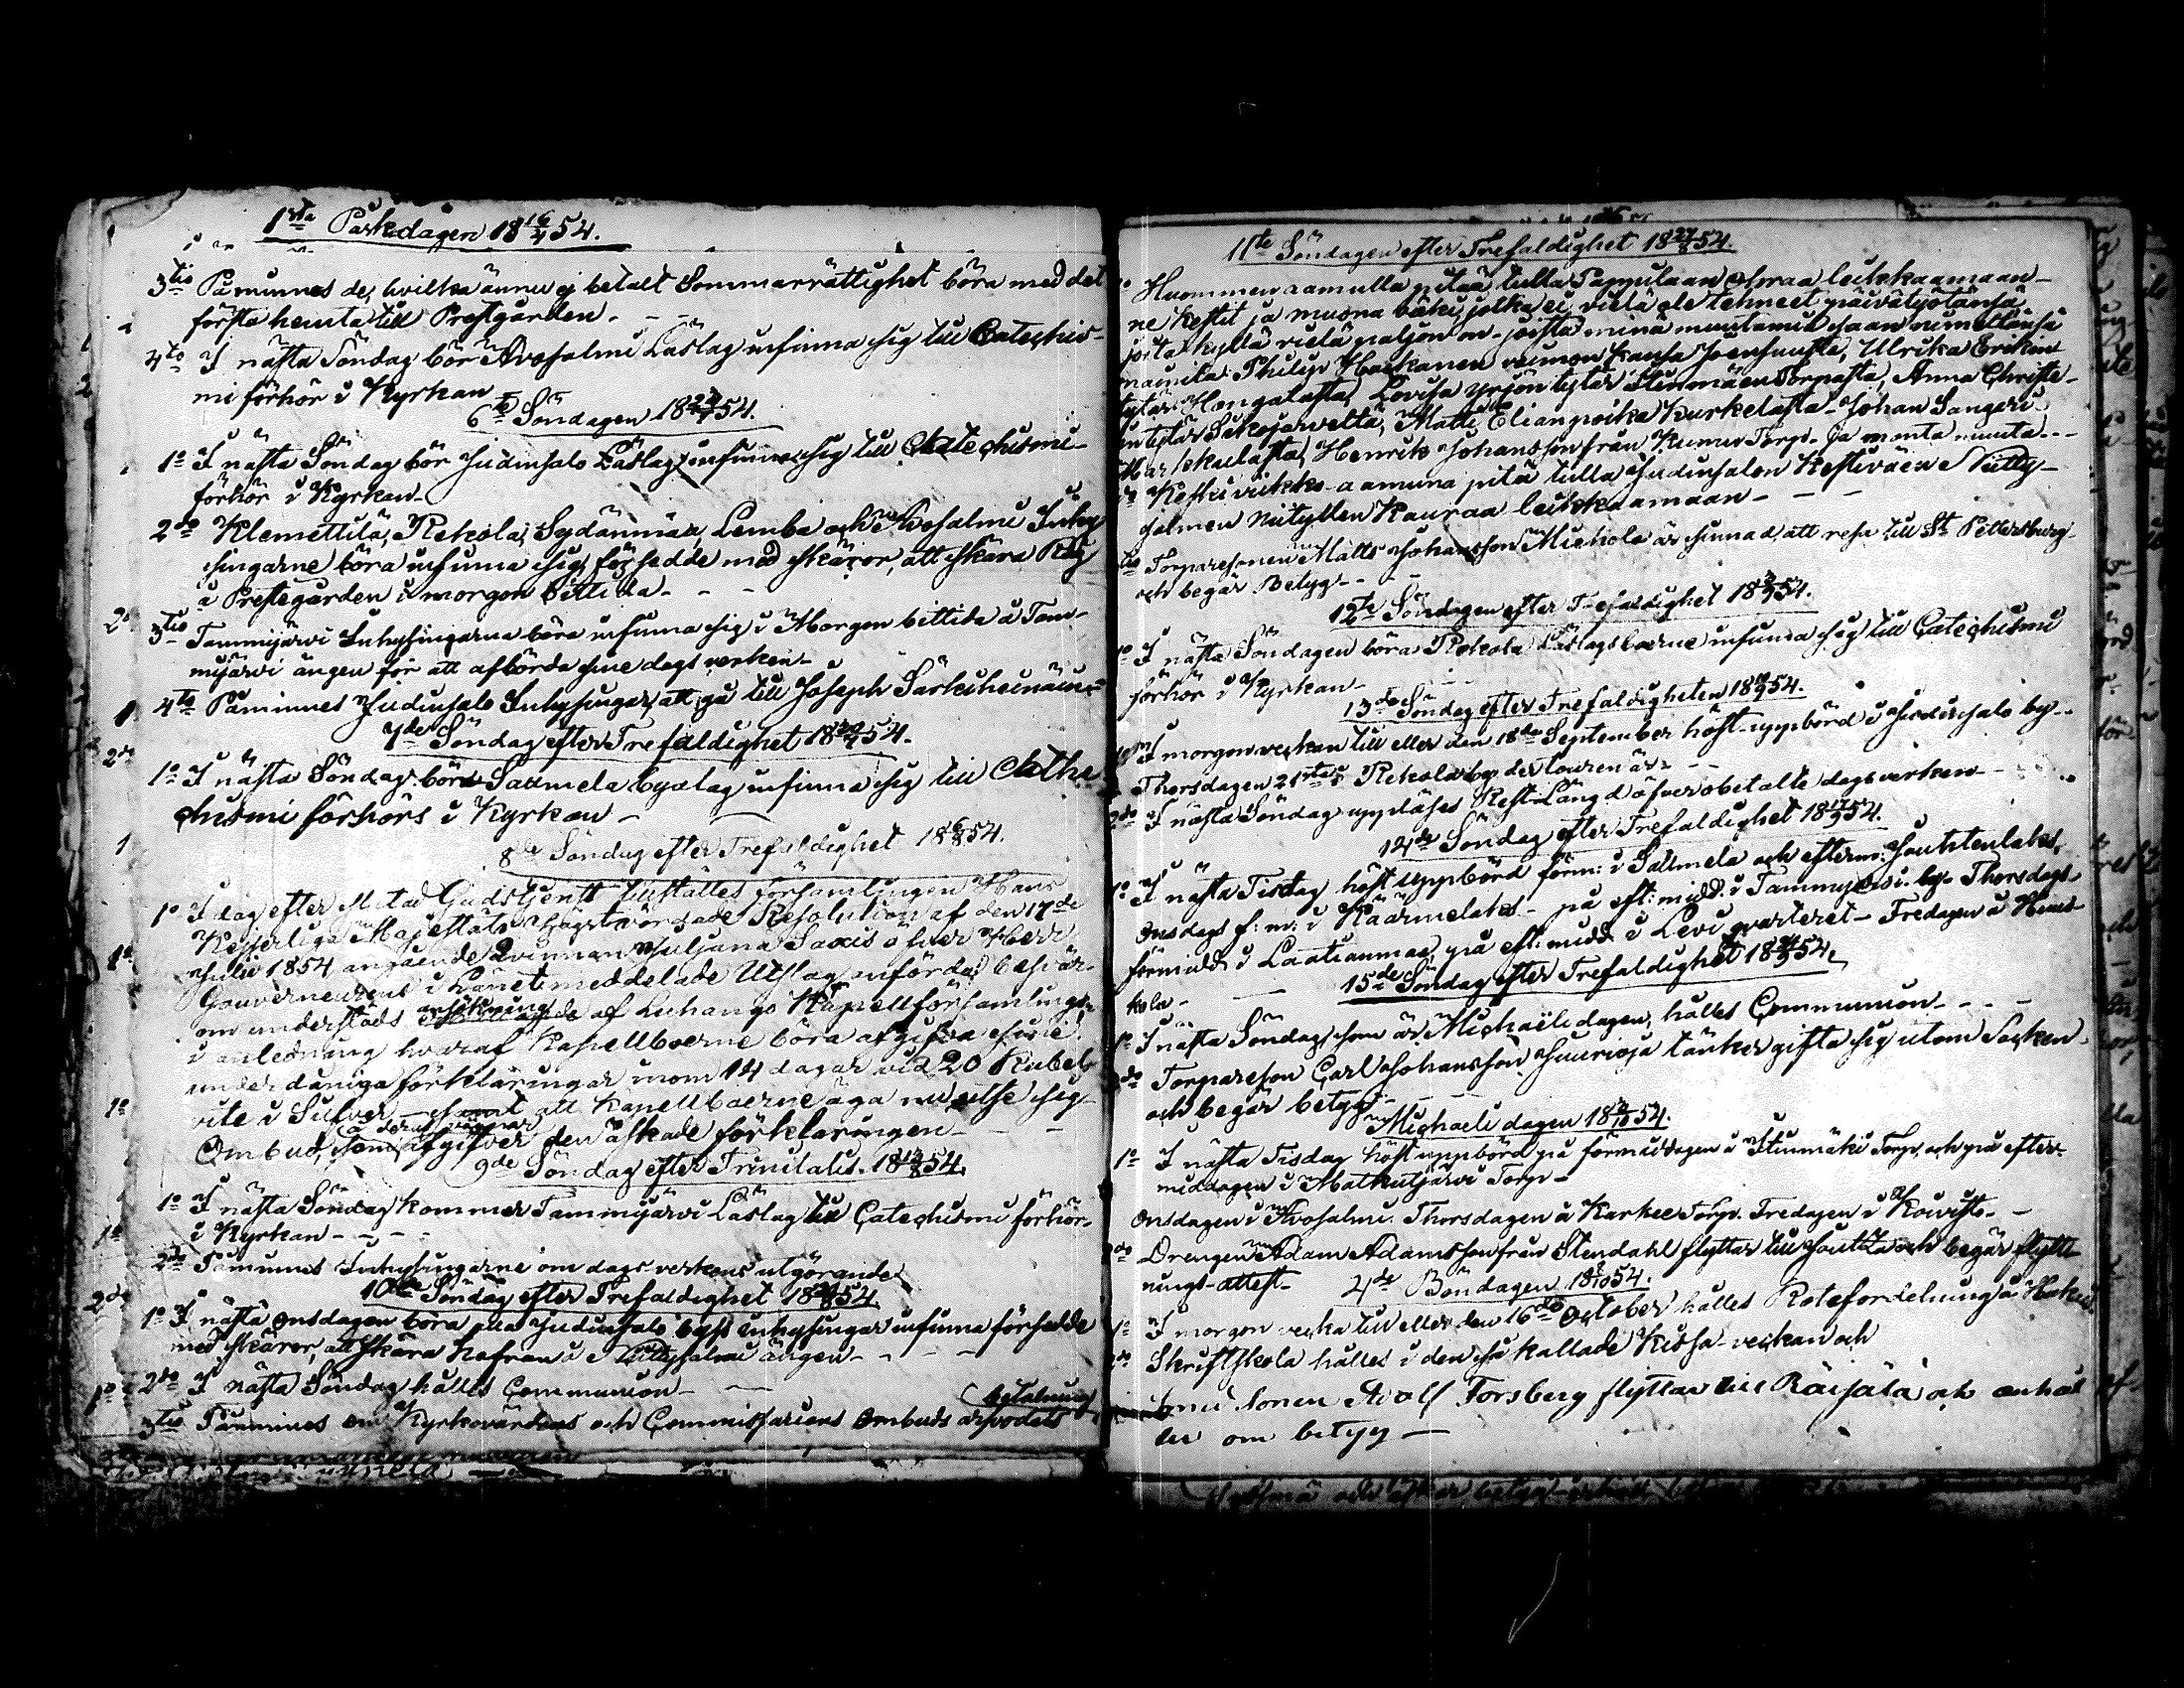 1sta Påskedagen 18 16/4 54.
3tio Påminnes de, hvilka ännu ej betalt Sommarrättighet böra med det
första hemta till Prestgården.
4to I nästa Söndag bör Avosalmi Läslag infinna sig till Catechis-
mi förhör i Kyrkan
6te Söndagen 18 54.
1o I nästa Söndag bör Judinsalo Läslag infinna sig till Catechismi-
förhör i Kyrkan-
2do Klemettilä, Rekola, Sydänmaa, Lemba och Avosalmi Inhy-
singarne böra infinna sig, försedde med skäror, att skära Råg
å Prestegården i morgon bittida - - -
3tio Tammijärvi Inhysingarna böra infinna sig i Morgon bittida å Tam-
mijärvi ängen för att afbörda sine dagsverken-
4to Påminnes Judinsalo Inhysingar, att gå till Joseph
7de Söndag efter Trefaldighet 18 54.
1o I nästa Söndag böra Saamela byalag infinna sig till Cathe-
chismi förhörs i Kyrkan -
8de Söndag efter Trefaldighet 18 6/8 54.
1o I dag efter slutad Gudstjenst tillställes församlingen Hans
Kejserliga Majestäts Högstvördade Resolution af den 17de
Julii 1854 angående Qvinnan Juliana Saxis öfver Herr
Gouverneurens i Länet meddelade Utslag anförda besvär
om understöds ansökning af Luhango Kapellförsamling-
i anledning hvaraf Kapellboerne böra afgifva sine
under dåniga förklaringar inom 14 dagar vid 20 Rubels
vite i Silfver - samt att Kapellboerne äga nu utse sig
Ombud, som å deras vägnar afgifver den äskade förklaringen - -
9de Söndag efter Trinitatis. 18 13/8 54.
1o I nästa Söndag kommer Tammijärvi Läslag till Catechismi förhör-
i Kyrkan - - -
2do Påminnes Inhysingarne om dagsverkens utgörande
10de Söndag efter Trefaldighet 18 20/8 54.
1o I nästa Onsdagen böra Judinsalo bys Inhysingar infinna försedde
med skäror, att skära hafran i ängen - - -
2do I nästa Söndag hålles Communion - -
3tio Påminnes om Kyrkovärdens och Commissariens Ombuds arfvodets betalning
11te Söndagen efter Trefaldighet 18 27/8 54.
Huommen aamulla pitää tulla Pappilaan Ohraa leikkaamaan-
ne Kestit ja muona väki, jotka ei vielä ole tehneet päivätyötänsä
joita kyllä vielä paljon on - joista minä muutamia saan nimellänsä
mainita: Philip Hackanen vaimon kansa Joensuusta, Ulrika Erikin
tytär Hangalasta, Lovisa Yrjön tytär Torpasta, Anna Christe-
Matti Elianpoika Kurkelasta - Johan Sangari
Markkulasta, Henrik Johansson från Torp. ja monta muuta - -
Keski viikko aamuna pitä tulla Judinsalon Kestiväen
Kauraa leikkaamaan - - -
Torparesonen Matts Johansson Michola är sinnad att resa till St Petersburg
och begär Betyg - - -
12te Söndagen efter Trefaldighet 18 3/9 54.
1o I nästa Söndagen böra Rekola Läslagsboerne infinna sig till Catechismi
förhör i Kyrkan -
13de Söndag efter Trefaldigheten 18 10/9 54.
1o I morgon veckan till eller den 18de September höst-uppbörd i Judinsalo by-
Thorsdagen 21sta i Rekola by der touren är -
2do I nästa Söndag uppläses Rest-Längd öfver obetalte dagsverken -
14de Söndag efter Trefaldighet 18 17/9 54.
1o I nästa Tisdag höst uppbörd förm: i Saamela och efterm: Hauhtenlaks.
Onsdags f: m: i Käärmelaks - på eft: midd. i Tammijärvi by- Thorsdags
förmidd i Laatianmae, på eft: midd i Levi qvarteret - Fredagen å
kola -
15de Söndag efter Trefaldighet 18 24/9 54.
1o I nästa Söndag, som är Michaëli dagen, hålles Communion - - -
2do Torpareson Carl Johansson Suurioja tänker gifta sig utom Socken
och begär betyg -
Michaeli dagen 18 1/10 54.
1o I nästa Tisdag höst uppbörd på förmiddagen i Torp, och på efter-
middagen i Matkusjärvi Torp -
Onsdagen i Avosalmi. Thorsdagen å Karkee Torp. Fredagen i Koivisto- -
2do Drengen Adam Adamsson från Stendahl flyttar till och begär flytt
nings-attest-
4de Böndagen 18 8/10 54.
1o I morgon vecka till eller den 16de October hålles Rotefördelning å
2do Skriftskola hålles i den så kallade Kissa-veckan och
Adolf Forsberg flyttar till Räisälä och anhål
ler om betyg -